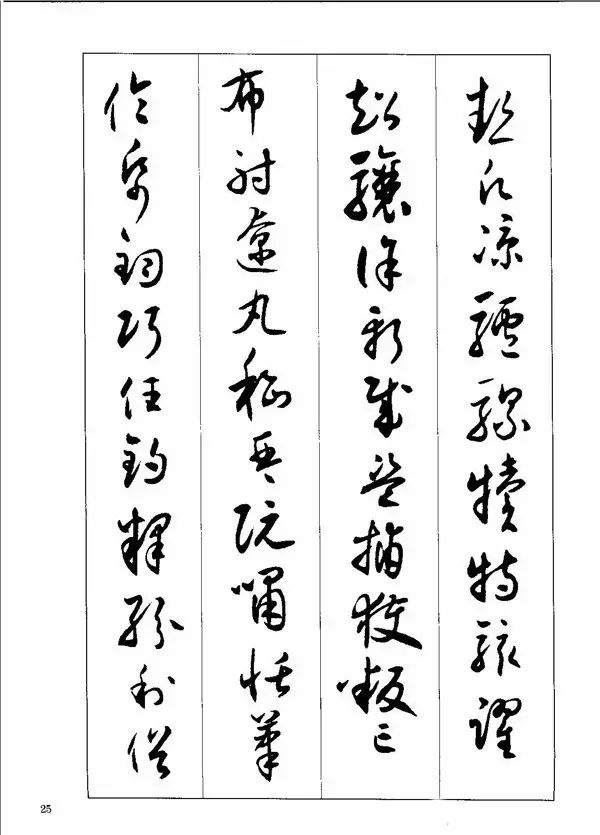 熱願涼驢騾犢特駭躍
超驤誅斬賊盜捕獲叛亡
布射遼丸嵇琴阮嘯恬筆
倫紙鈞巧任釣釋紛利俗
25